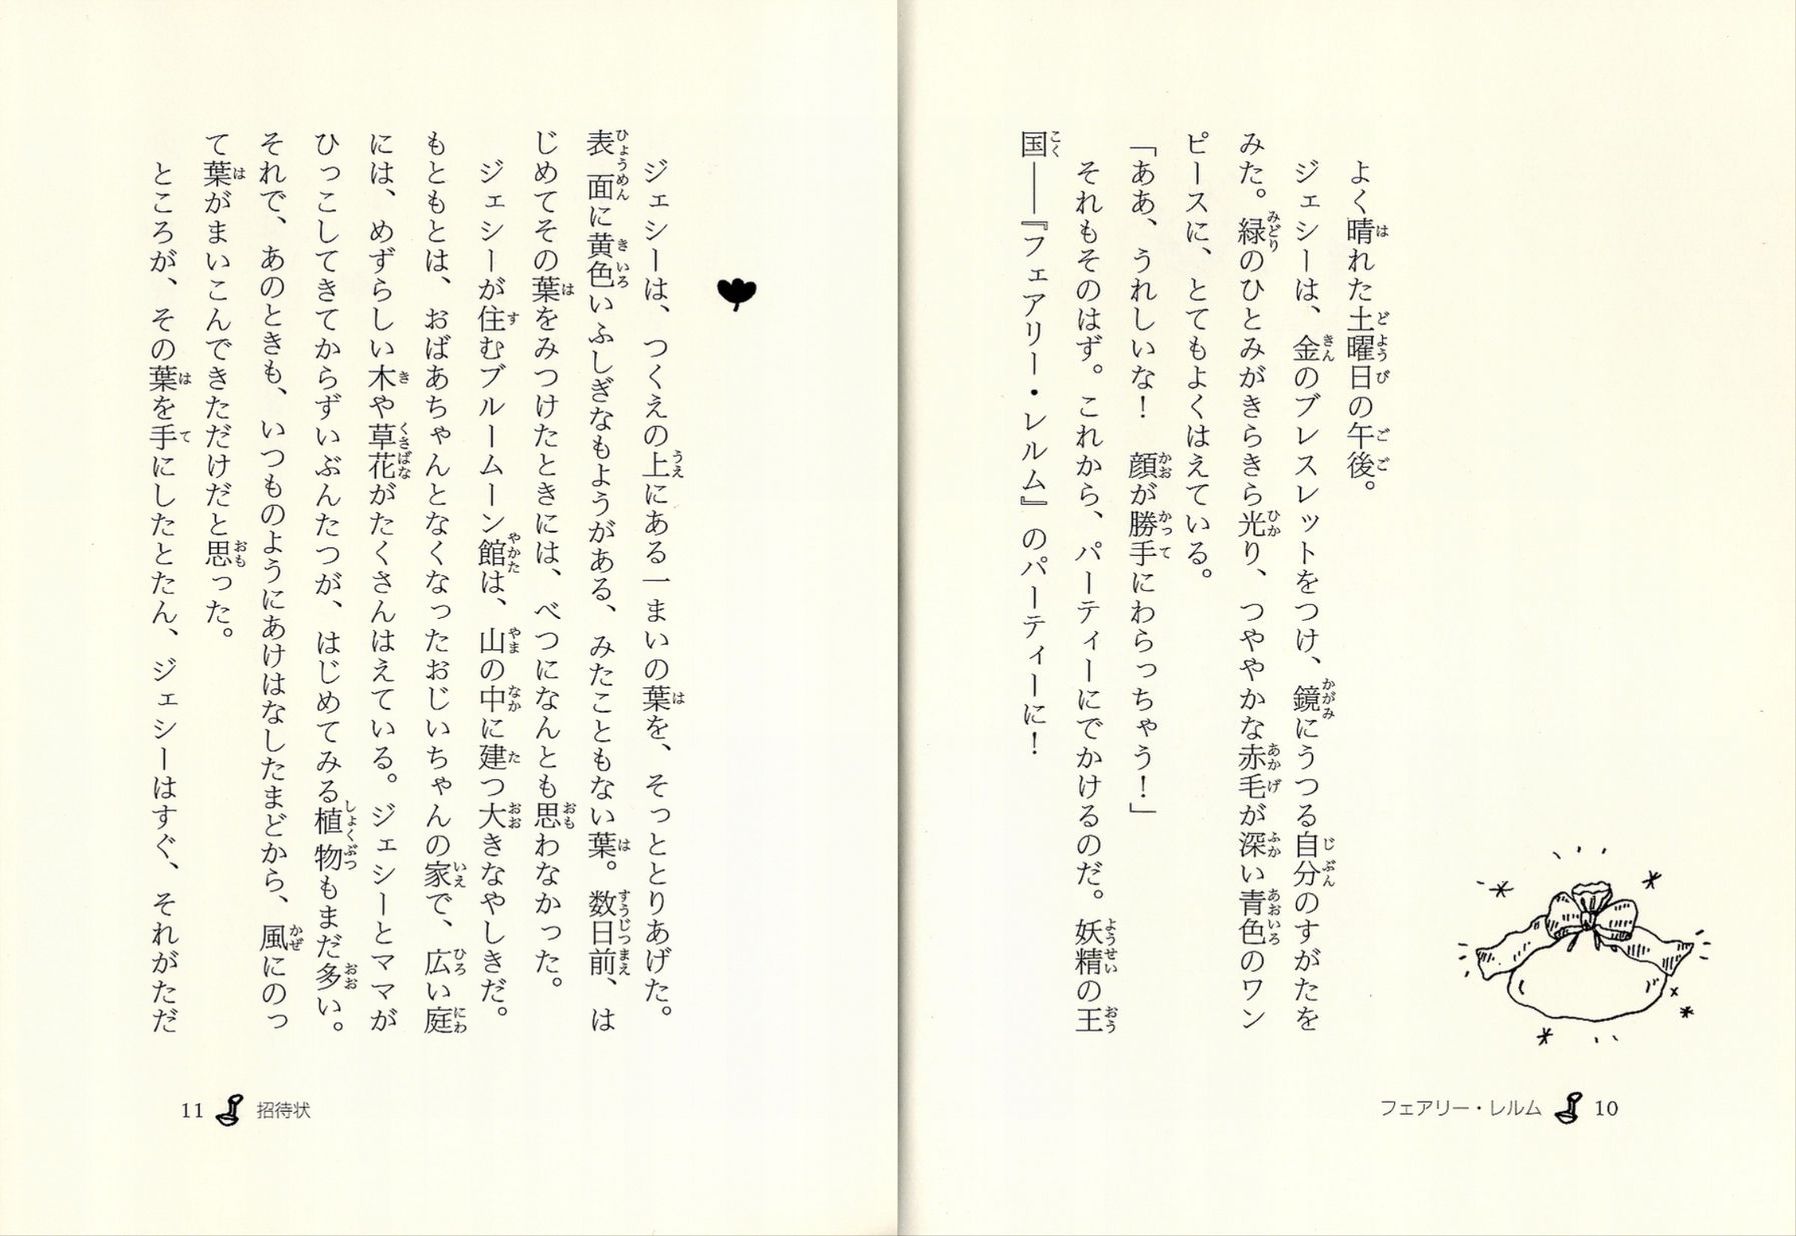 よく晴れた土曜日の午後。
ジェシーは、金のブレスレットをつけ、鏡にうつる自分のすがたを
みた。緑のひとみがきらきら光り、つややかな赤毛が深い青色のワン
ピースに、とてもよくはえている。
「ああ、うれしいな！　顔が勝手にわらっちゃう！」
それもそのはず。これから、パーティーにでかけるのだ。妖精の王
国――『フェアリー・レルム』のパーティーに！
フェアリー・レルム 10
ジェシーは、つくえの上にある一まいの葉を、そっととりあげた。
表面に黄色いふしぎなもようがある、みたこともない葉。数日前、は
じめてその葉をみつけたときには、べつになんとも思わなかった。
ジェシーが住むブルームーン館は、山の中に建つ大きなやしきだ。
もともとは、おばあちゃんとなくなったおじいちゃんの家で、広い庭
には、めずらしい木や草花がたくさんはえている。ジェシーとママが
ひっこしてきてからずいぶんたつが、はじめてみる植物もまだ多い。
それで、あのときも、いつものようにあけはなしたまどから、風にのっ
て葉がまいこんできただけだと思った。
ところが、その葉を手にしたとたん、ジェシーはすぐ、それがただ
11 招待状